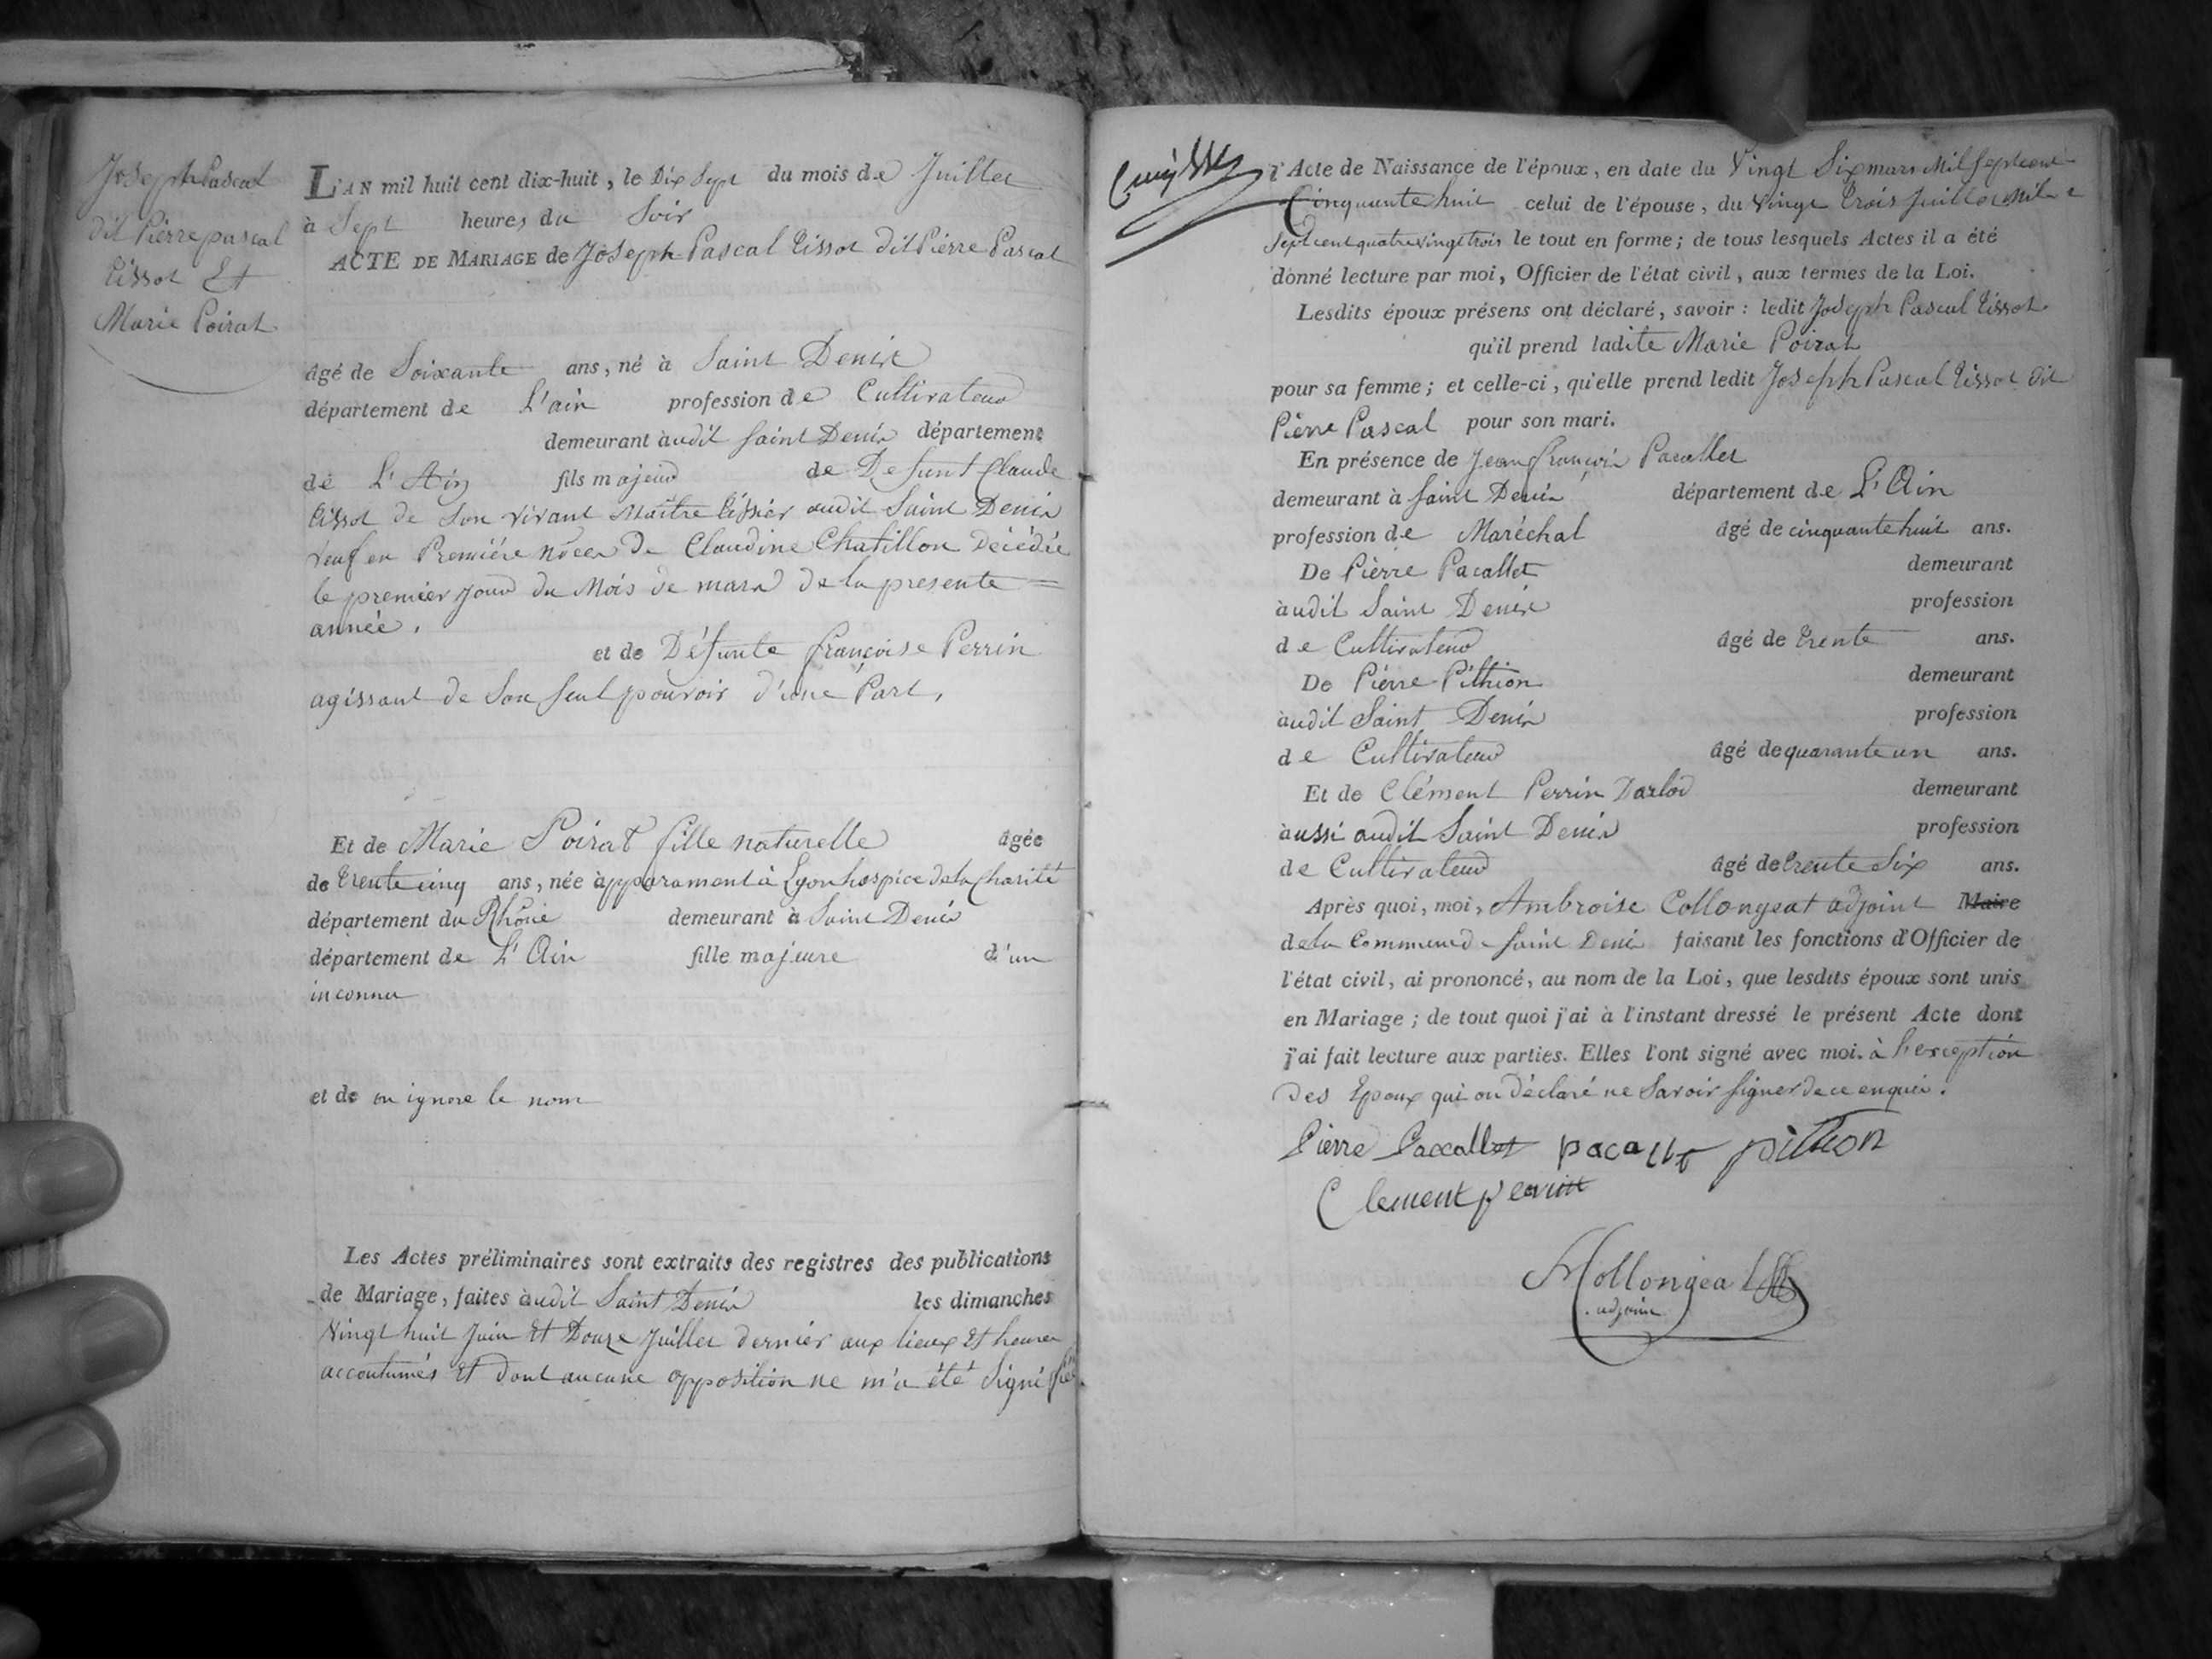 Joseph Pascal
dit Pierre pascal
Tissot Et
Marie Poirat
L'AN mil huit cent dix-huit, le Dix Sept du mois de Juillet
à Sept heures du Soir
ACTE DE MARIAGE de Joseph Pascal Tissot dit Pierre Pascal
âgé de Soixante ans, né à Saint Denis
département de L'ain profession de Cultivateur
demeurant audit Saint Denis département
de L'Ain fils majeur de Defunt Claude
Tissot de Son vivant Maître tissier audit Saint Denis
Veuf en Premiére nôces De Claudine Chatillon Décédée
le premier jour du Mois de mars de la presente
année.
et de Défunte françoise Perrin
agissant de Son Seul pouvoir d'une Part,
Et de Marie Poirat fille naturelle âgée
de trente cinq ans, née apparament à Lyon hospice de la Charité
département du Rhône demeurant à Saint Denis
département de L'Ain fille majeure d'un
inconnu
et de on ignore le nom
Les Actes préliminaires sont extraits des registres des publications
de Mariage, faites audit Saint Denis les dimanches
Vingt huit Juin Et Douze Juillet dernier aux lieux Et heures
accoutumés Et dont aucune opposition ne m'a été Signifiée
l'Acte de Naissance de l'époux, en date du Vingt Six mars Mil Sept cent
Cinquante huit celui de l'épouse, du Vingt trois Juillet Mil
Sept cent quatre vingt trois le tout en forme; de tous lesquels Actes il a été
donné lecture par moi, Officier de l'état civil, aux termes de la Loi.
Lesdits époux présens ont déclaré, savoir : ledit Joseph Pascal Tissot
qu'il prend ladite Marie Poirat
pour sa femme; et celle-ci, qu'elle prend ledit Joseph Pascal Tissot dit
Pierre Pascal pour son mari.
En présence de Jean françois Pacallet
demeurant à Saint Denis département de L'Ain
profession de Maréchal âgé de cinquante huit ans.
De Pierre Pacallet demeurant
audit Saint Denis profession
de Cultivateur âgé de trente ans.
De Pierre Pithion demeurant
audit Saint Denis profession
de Cultivateur âgé de quarante un ans.
Et de Clément Perrin Darloz demeurant
aussi audit Saint Denis profession
de Cultivateur âgé de trente Six ans.
Après quoi, moi, Ambroise Collongeat adjoint Maire
de la Commune de Saint Denis faisant les fonctions d'Officier de
l'état civil, ai prononcé, au nom de la Loi, que lesdits époux sont unis
en Mariage; de tout quoi j'ai à l'instant dressé le présent Acte dont
j'ai fait lecture aux parties. Elles l'ont signé avec moi. à l'exception
des Epoux qui on déclaré ne Savoir signer de ce enquis.
Pierre Pacallet pacallet pithion
Clement perrin
Collongeat
adjoint